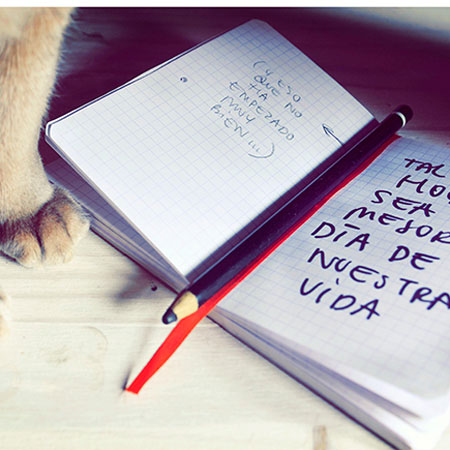 (Y ESO
QUE NO
HA
EMPEZADO
MUY
BIEN...)
TAL
HOY
SEA
MEJOR
DÍA DE
NUESTRA
VIDA